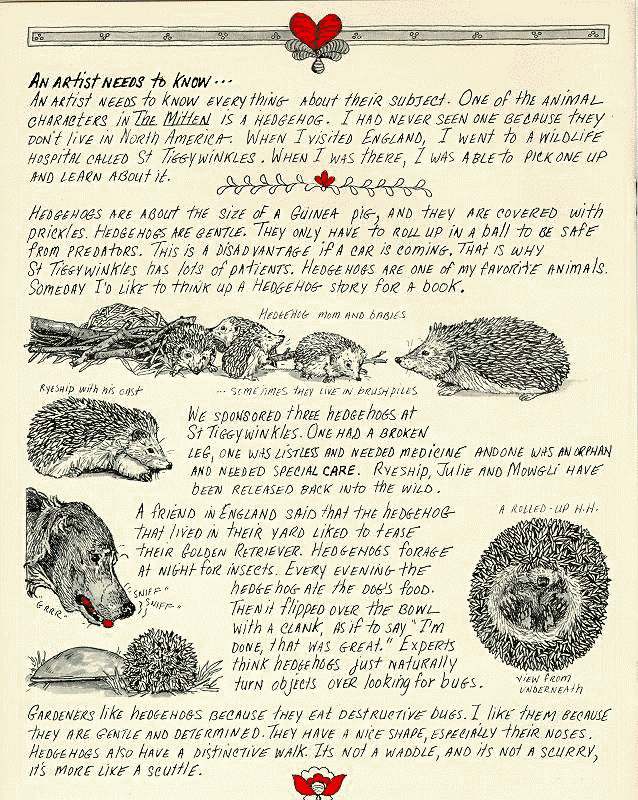 AN ARTIST NEEDS TO KNOW...
AN ARTIST NEEDS TO KNOW EVERYTHING ABOUT THEIR SUBJECT. ONE OF THE ANIMAL
CHARACTERS IN The Mitten IS A HEDGEHOG. I HAD NEVER SEEN ONE BECAUSE THEY
DON'T LIVE IN NORTH AMERICA. WHEN I VISITED ENGLAND, I WENT TO A WILDLIFE
HOSPITAL CALLED ST TIGGYWINKLES. WHEN I WAS THERE, I WAS ABLE TO PICK ONE UP
AND LEARN ABOUT IT.
HEDGEHOGS ARE ABOUT THE SIZE OF A GUINEA PIG, AND THEY ARE COVERED WITH
PRICKLES. HEDGEHOGS ARE GENTLE. THEY ONLY HAVE TO ROLL UP IN A BALL TO BE SAFE
FROM PREDATORS. THIS IS A DISADVANTAGE IF A CAR IS COMING. THAT IS WHY
ST TIGGYWINKLES HAS LOTS OF PATIENTS. HEDGEHOGS ARE ONE OF MY FAVORITE ANIMALS.
SOMEDAY I'D LIKE TO THINK UP A HEDGEHOG STORY FOR A BOOK.
HEDGEHOG MOM AND BABIES
RYESHIP WITH HIS CAST
... SOMETIMES THEY LIVE IN BRUSHPILES
WE SPONSORED THREE HEDGEHOGS AT
ST TIGGYWINKLES. ONE HAD A BROKEN
LEG, ONE WAS LISTLESS AND NEEDED MEDICINE AND ONE WAS AN ORPHAN
AND NEEDED SPECIAL CARE. RYESHIP, JULIE AND MOWGLI HAVE
BEEN RELEASED BACK INTO THE WILD.
A FRIEND IN ENGLAND SAID THAT THE HEDGEHOG
THAT LIVED IN THEIR YARD LIKED TO TEASE
THEIR GOLDEN RETRIEVER. HEDGEHOGS FORAGE
AT NIGHT FOR INSECTS. EVERY EVENING THE
HEDGEHOG ATE THE DOG'S FOOD.
THEN IT FLIPPED OVER THE BOWL
WITH A CLANK, AS IF TO SAY "I'M
DONE, THAT WAS GREAT." EXPERTS
THINK HEDGEHOGS JUST NATURALLY
TURN OBJECTS OVER LOOKING FOR BUGS.
A ROLLED-UP H.H.
"SNIFF"
"SNIFF"
GRRR"
VIEW FROM
UNDERNEATH
GARDENERS LIKE HEDGEHOGS BECAUSE THEY EAT DESTRUCTIVE BUGS. I LIKE THEM BECAUSE
THEY ARE GENTLE AND DETERMINED. THEY HAVE A NICE SHAPE, ESPECIALLY THEIR NOSES.
HEDGEHOGS ALSO HAVE A DISTINCTIVE WALK. ITS NOT A WADDLE, AND ITS NOT A SCURRY,
IT'S MORE LIKE A SCUTTLE.